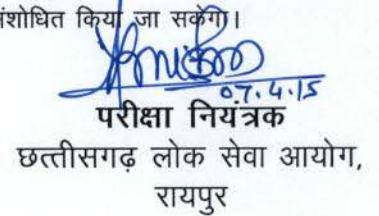 संशोधित किया जा सकेगा।
07.4.15
परीक्षा नियंत्रक
छत्तीसगढ़ लोक सेवा आयोग,
रायपुर